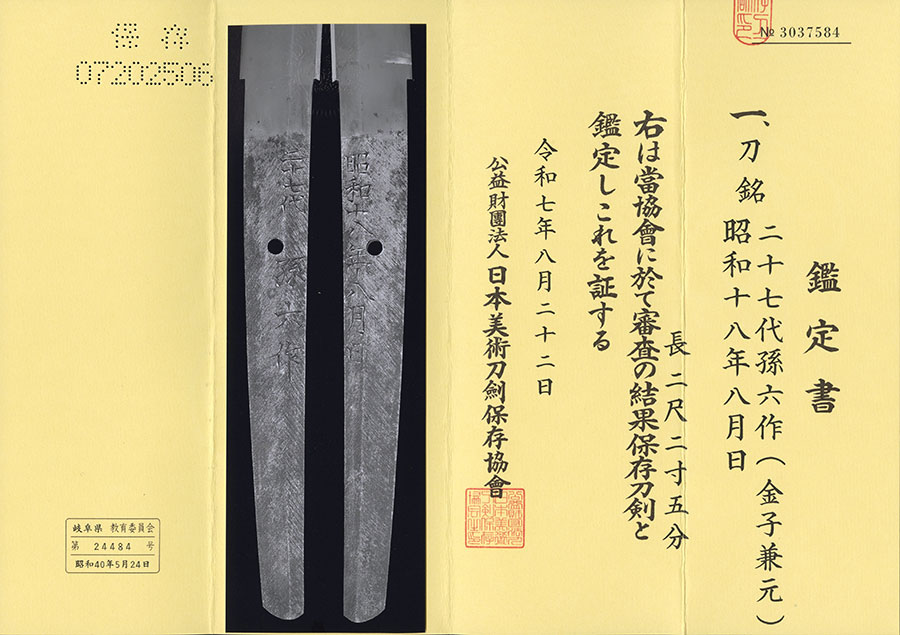 № 3037584
鑑定書
一、刀 銘 二十七代孫六作(金子兼元)
昭和十八年八月日
長 二尺二寸五分
右は當協會に於て審査の結果保存刀剣と
鑑定しこれを証する
令和七年八月二十二日
公益財團法人日本美術刀剣保存協會
昭和十八年八月日
二十七代孫六作
保存
07202506
岐阜県 教育委員会
第 24484 号
昭和40年5月24日